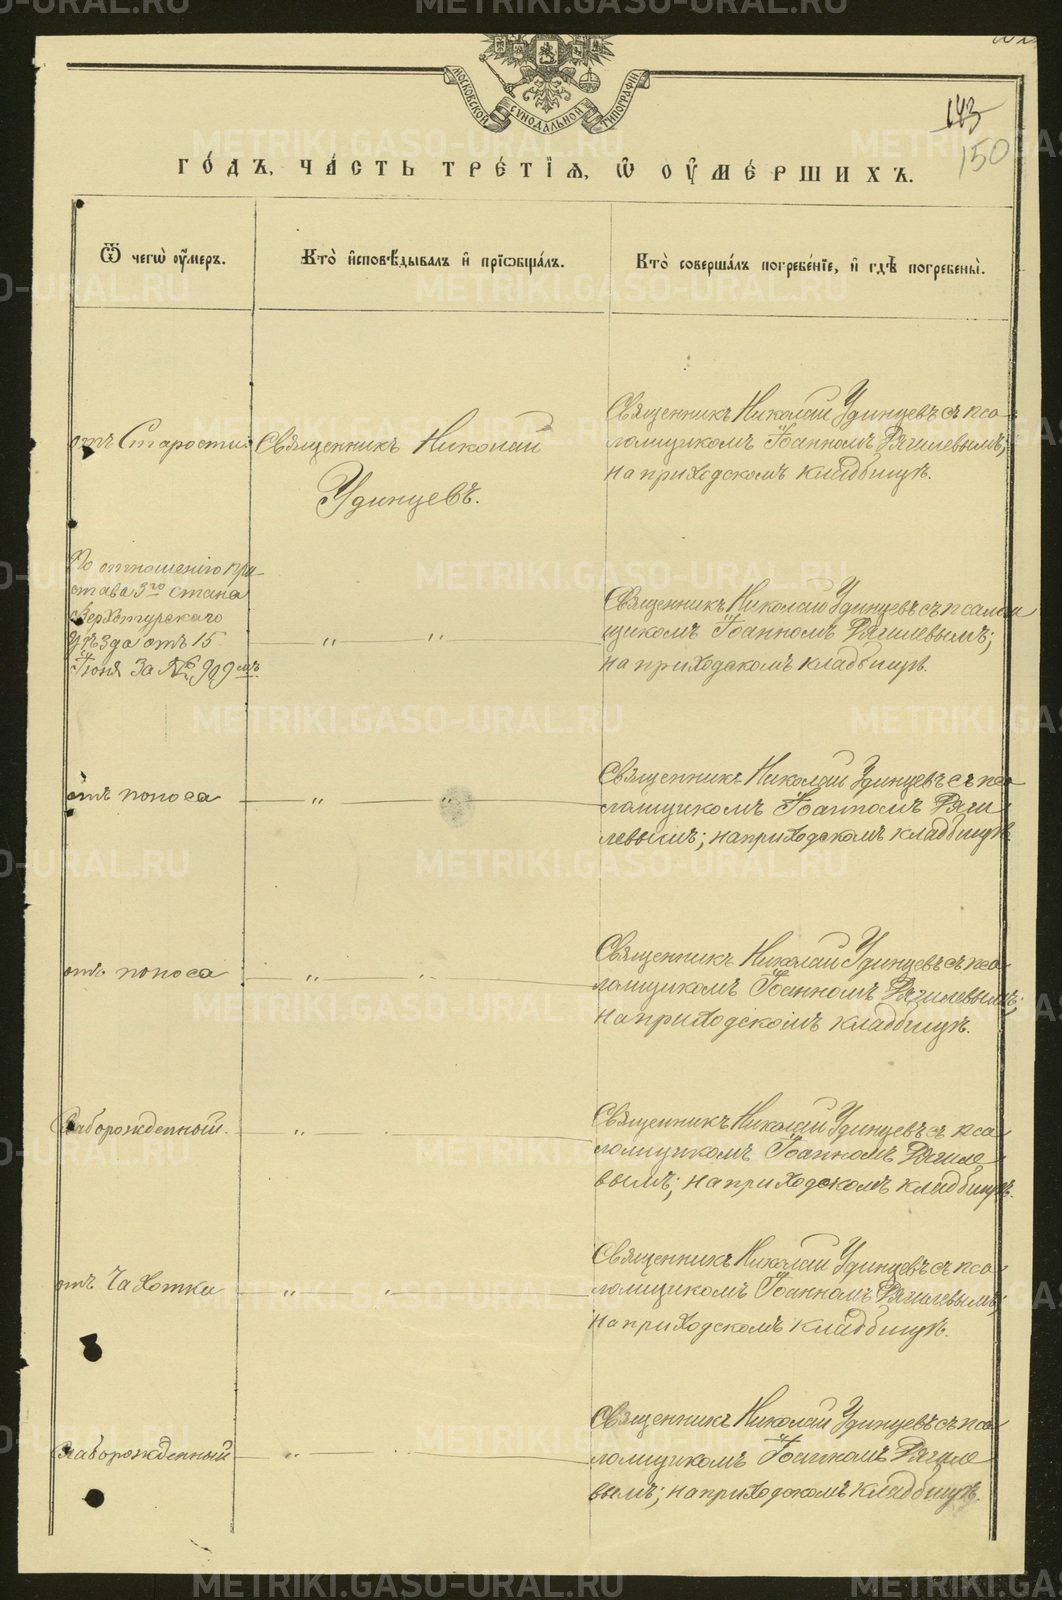 МОСКОВСКОЙ СѴНОДАЛЬНОЙ ТИПОГРАФІИ
143
150
ГО́ДЪ, ЧА́СТЬ ТРЕ́ТІѦ, Ѡ҆ ОУ҆МЕ́РШИХЪ.
Ѿ чегѡ̀ оу҆́меръ.
Кто̀ и҆сповѣ́дывалъ и҆ пріѡбща́лъ.
Кто̀ соверша́лъ погребе́ніе, и҆ гдѣ̀ погребены̀.
отъ Старости
Священникъ Николай
Удинцевъ.
Священникъ Николай Удинцевъ съ пса-
ломщикомъ Іоанномъ Рычилевымъ;
на приходскомъ кладбищѣ.
По отношенію при-
става 3го стана
Верхотурскаго
уѣзда отъ 15
Іюня за № 909мъ.
— „ — „ —
Священникъ Николай Удинцевъ съ псалом
щикомъ Іоанномъ Рычилевымъ;
на приходскомъ кладбищѣ.
отъ поноса
— „ — „ —
Священникъ Николай Удинцевъ съ пса
ломщикомъ Іоанномъ Рычи
левымъ; на приходскомъ кладбищѣ.
отъ поноса
— „ — „ —
Священникъ Николай Удинцевъ съ пса-
ломщикомъ Іоанномъ Рычилевымъ;
на приходскомъ кладбищѣ.
Слаборожденный.
— „ — „ —
Священникъ Николай Удинцевъ съ пса
ломщикомъ Іоанномъ Рычиле
вымъ; на приходскомъ кладбищѣ.
отъ Чахотки
— „ — „ —
Священникъ Николай Удинцевъ съ пса
ломщикомъ Іоанномъ Рычилевымъ;
на приходскомъ кладбищѣ.
Слаборожденный
— „ — „ —
Священникъ Николай Удинцевъ съ пса
ломщикомъ Іоанномъ Рычиле
вымъ; на приходскомъ кладбищѣ.
METRIKI.GASO-URAL.RU